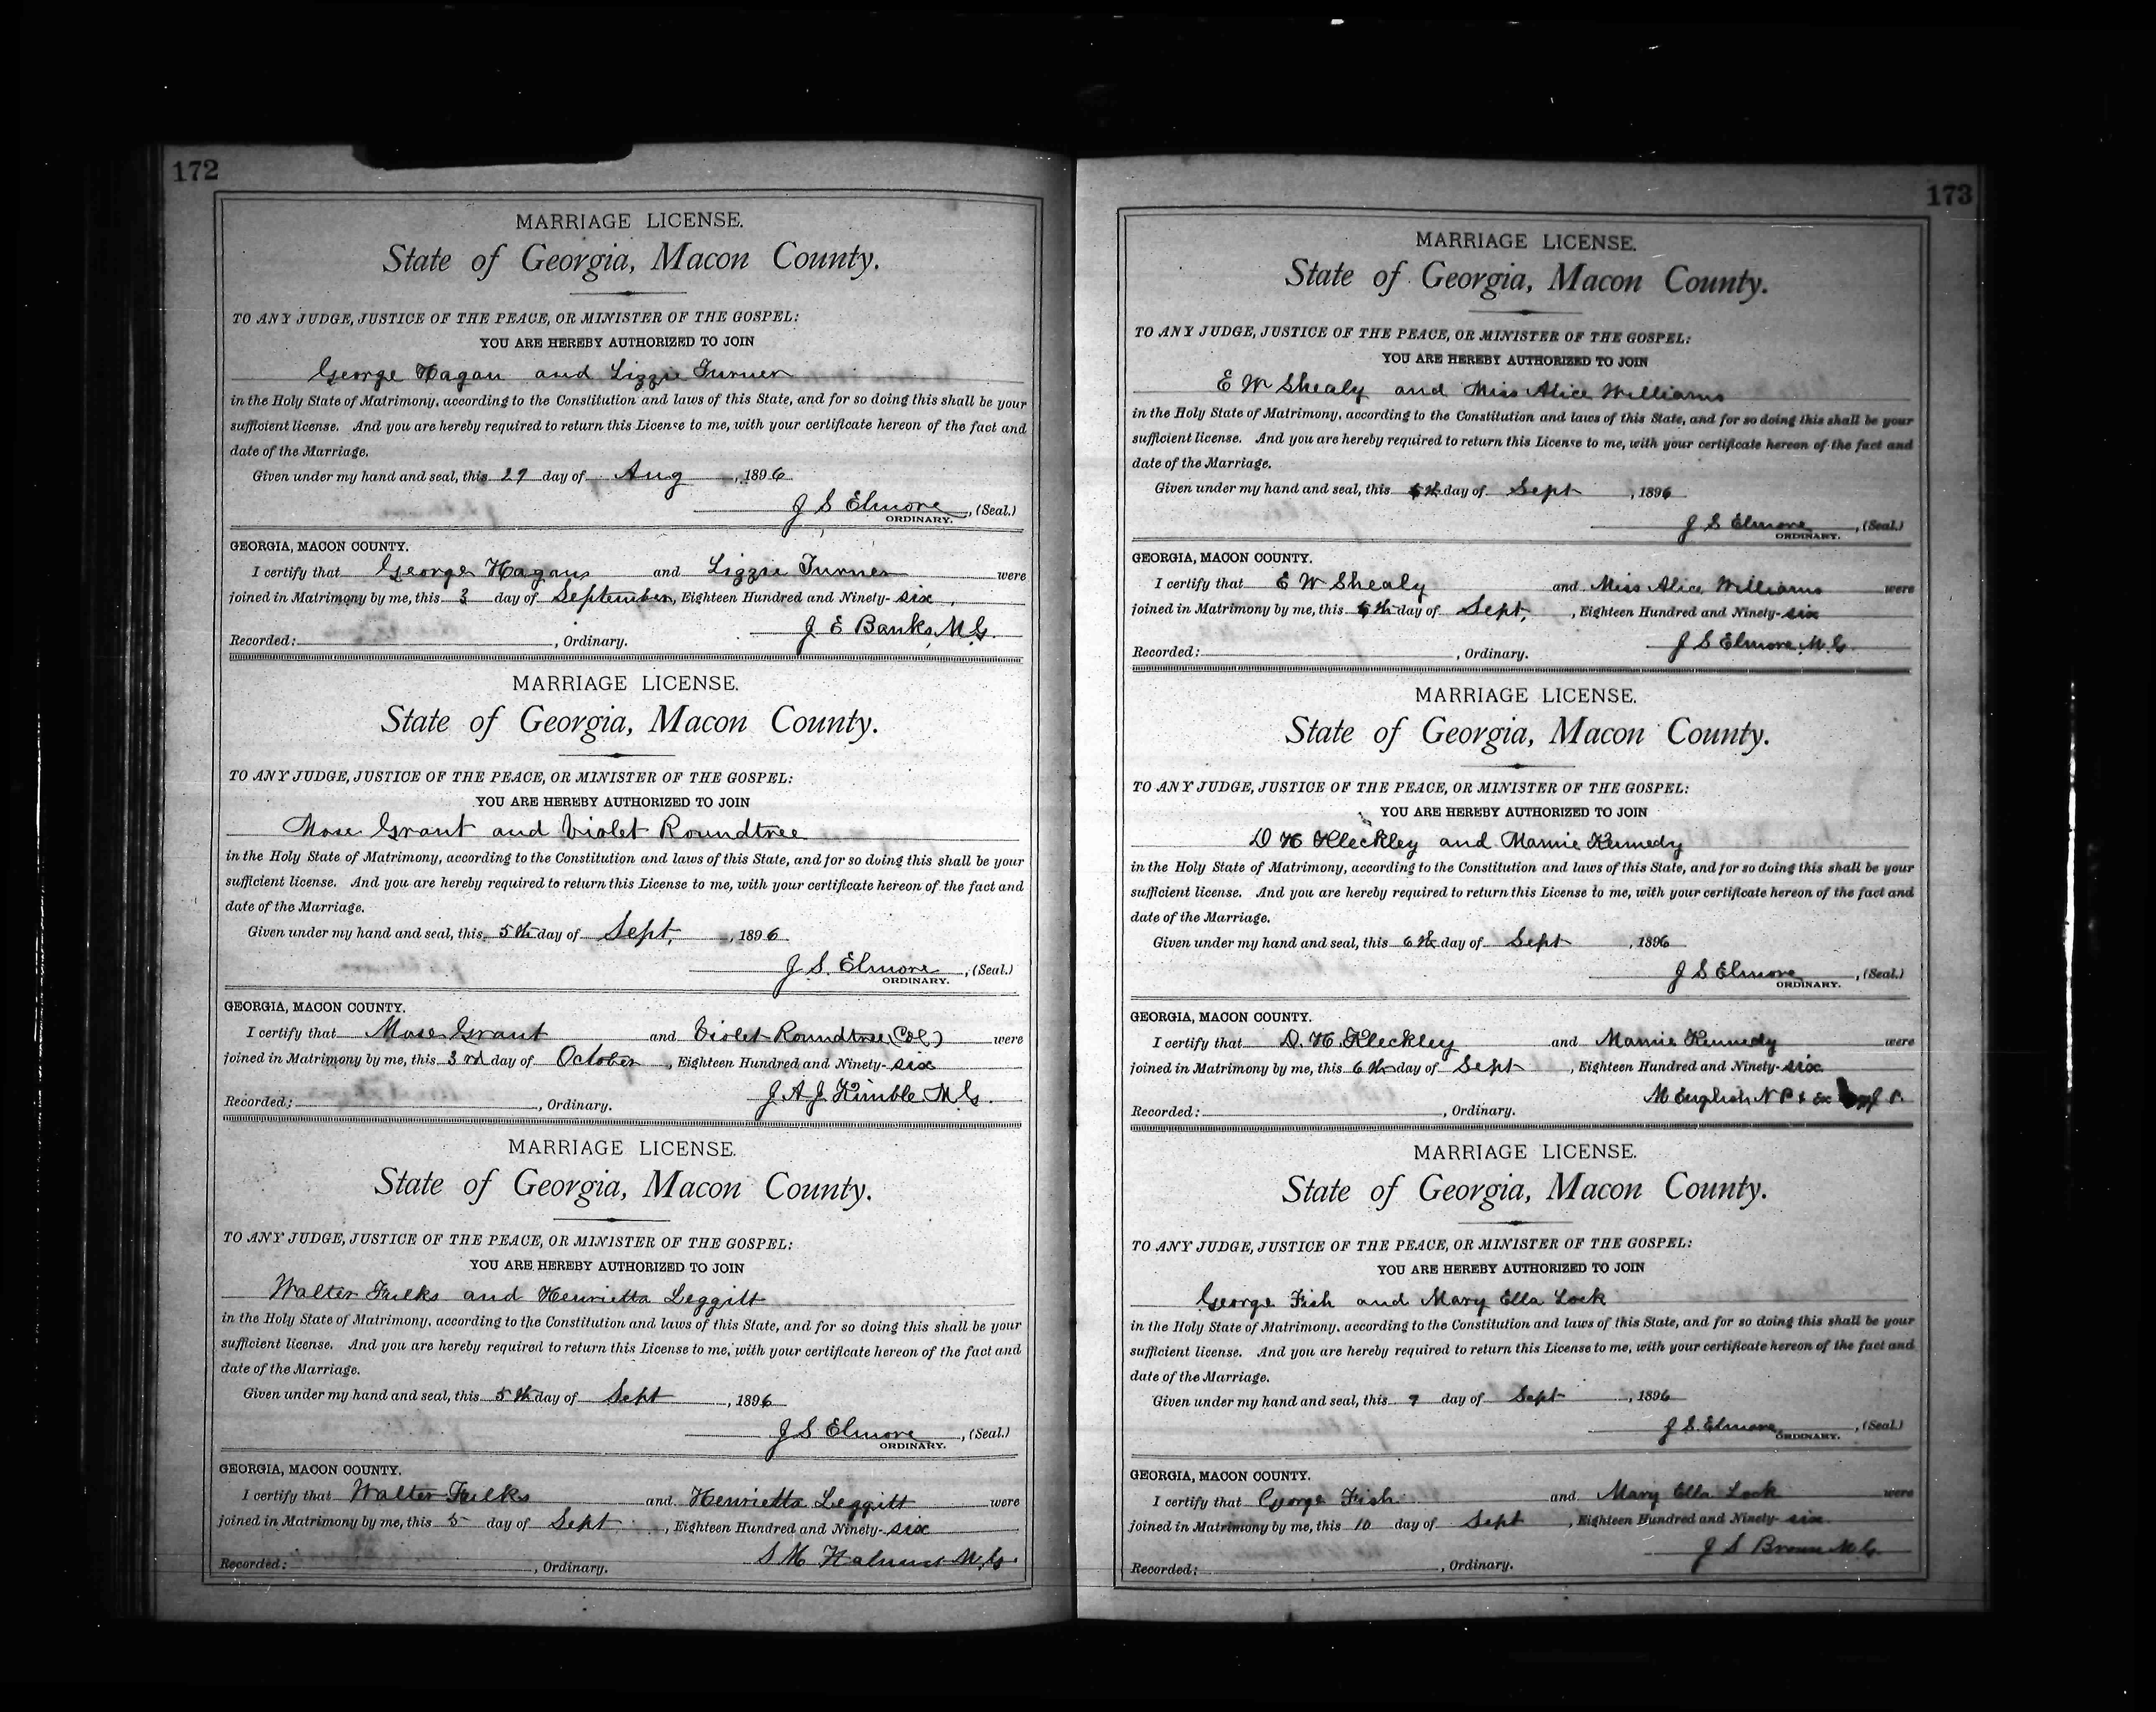 172
MARRIAGE LICENSE.
State of Georgia, Macon County.
TO ANY JUDGE, JUSTICE OF THE PEACE, OR MINISTER OF THE GOSPEL:
YOU ARE HEREBY AUTHORIZED TO JOIN
George Hagan and Lizzie Turner
in the Holy State of Matrimony, according to the Constitution and laws of this State, and for so doing this shall be your
sufficient license. And you are hereby required to return this License to me, with your certificate hereon of the fact and
date of the Marriage.
Given under my hand and seal, this 27 day of Aug, 1896
J S Elmore, (Seal.)
ORDINARY.
GEORGIA, MACON COUNTY.
I certify that George Hagans and Lizzie Turner were
joined in Matrimony by me, this 3 day of September, Eighteen Hundred and Ninety-six,
J E Banks, M.G.
Recorded: , Ordinary.
MARRIAGE LICENSE.
State of Georgia, Macon County.
TO ANY JUDGE, JUSTICE OF THE PEACE, OR MINISTER OF THE GOSPEL:
YOU ARE HEREBY AUTHORIZED TO JOIN
Mose Grant and Violet Roundtree
in the Holy State of Matrimony, according to the Constitution and laws of this State, and for so doing this shall be your
sufficient license. And you are hereby required to return this License to me, with your certificate hereon of the fact and
date of the Marriage.
Given under my hand and seal, this 5th day of Sept, 1896
J S. Elmore, (Seal.)
ORDINARY.
GEORGIA, MACON COUNTY.
I certify that Mose Grant and Violet Roundtree (Col) were
joined in Matrimony by me, this 3rd day of October, Eighteen Hundred and Ninety-six
J A J Kimble M.G.
Recorded: , Ordinary.
MARRIAGE LICENSE.
State of Georgia, Macon County.
TO ANY JUDGE, JUSTICE OF THE PEACE, OR MINISTER OF THE GOSPEL:
YOU ARE HEREBY AUTHORIZED TO JOIN
Walter Fulks and Henrietta Leggitt
in the Holy State of Matrimony, according to the Constitution and laws of this State, and for so doing this shall be your
sufficient license. And you are hereby required to return this License to me, with your certificate hereon of the fact and
date of the Marriage.
Given under my hand and seal, this 5th day of Sept, 1896
J S Elmore, (Seal.)
ORDINARY.
GEORGIA, MACON COUNTY.
I certify that Walter Fulks and Henrietta Leggitt were
joined in Matrimony by me, this 5 day of Sept, Eighteen Hundred and Ninety-six
S M M.G.
Recorded: , Ordinary.
173
MARRIAGE LICENSE.
State of Georgia, Macon County.
TO ANY JUDGE, JUSTICE OF THE PEACE, OR MINISTER OF THE GOSPEL:
YOU ARE HEREBY AUTHORIZED TO JOIN
E W Shealy and Miss Alice Williams
in the Holy State of Matrimony, according to the Constitution and laws of this State, and for so doing this shall be your
sufficient license. And you are hereby required to return this License to me, with your certificate hereon of the fact and
date of the Marriage.
Given under my hand and seal, this day of Sept, 1896
J S Elmore, (Seal.)
ORDINARY.
GEORGIA, MACON COUNTY.
I certify that E W Shealy and Miss Alice Williams were
joined in Matrimony by me, this day of Sept, Eighteen Hundred and Ninety-six
J S Elmore M.G.
Recorded: , Ordinary.
MARRIAGE LICENSE.
State of Georgia, Macon County.
TO ANY JUDGE, JUSTICE OF THE PEACE, OR MINISTER OF THE GOSPEL:
YOU ARE HEREBY AUTHORIZED TO JOIN
D H Kleckley and Mamie Kennedy
in the Holy State of Matrimony, according to the Constitution and laws of this State, and for so doing this shall be your
sufficient license. And you are hereby required to return this License to me, with your certificate hereon of the fact and
date of the Marriage.
Given under my hand and seal, this 6th day of Sept, 1896
J S Elmore, (Seal.)
ORDINARY.
GEORGIA, MACON COUNTY.
I certify that D. H. Kleckley and Mamie Kennedy were
joined in Matrimony by me, this 6th day of Sept, Eighteen Hundred and Ninety-six
M English N P & Ex
Recorded: , Ordinary.
MARRIAGE LICENSE.
State of Georgia, Macon County.
TO ANY JUDGE, JUSTICE OF THE PEACE, OR MINISTER OF THE GOSPEL:
YOU ARE HEREBY AUTHORIZED TO JOIN
George Fish and Mary Ella Lock
in the Holy State of Matrimony, according to the Constitution and laws of this State, and for so doing this shall be your
sufficient license. And you are hereby required to return this License to me, with your certificate hereon of the fact and
date of the Marriage.
Given under my hand and seal, this 7 day of Sept, 1896
J S. Elmore, (Seal.)
ORDINARY.
GEORGIA, MACON COUNTY.
I certify that George Fish and Mary Ella Lock were
joined in Matrimony by me, this 10 day of Sept, Eighteen Hundred and Ninety-six
J S Brown M.G.
Recorded: , Ordinary.